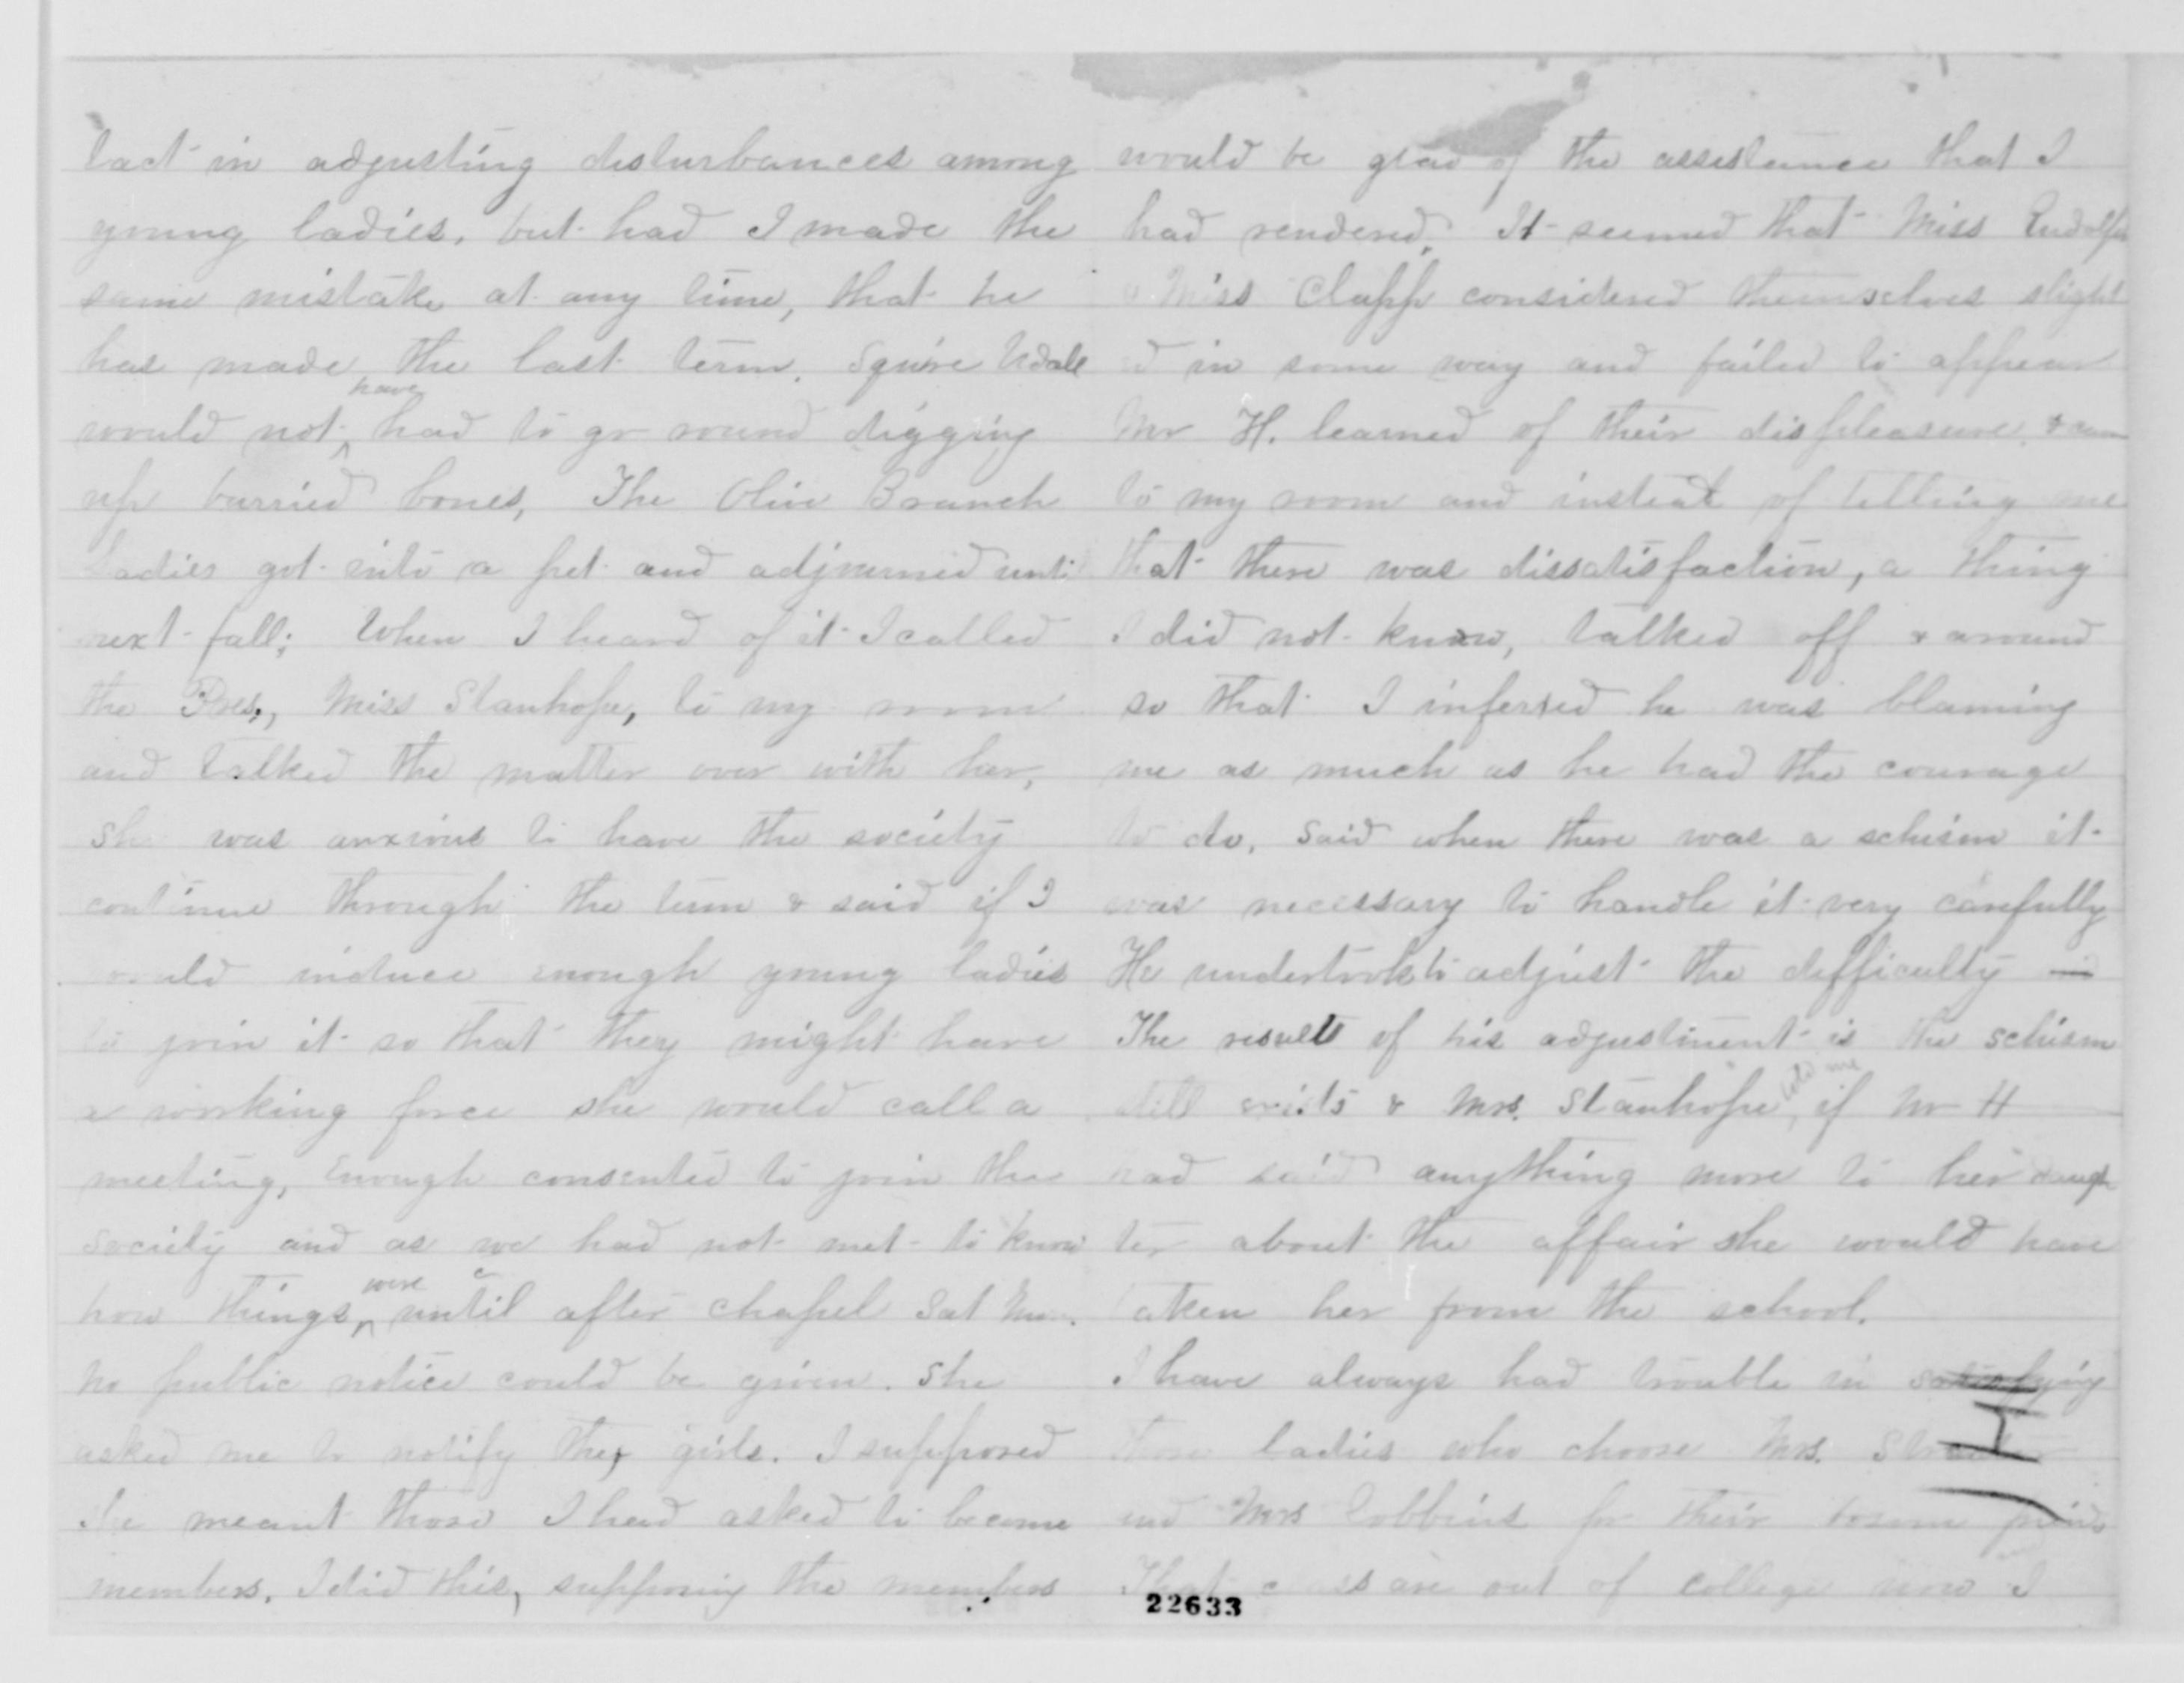 tact in adjusting disturbances among
young ladies, but had I made the
same mistake at any time, that he
has made the last term, Squire Udall
would not have had to go round digging
up burried bones, The Olive Branch
Ladies got into a fret and adjourned until
next fall; When I heard of it I called
the Pres., Miss Stanhope, to my room
and talked the matter over with her,
She was anxious to have the society
continue through the term & said if I
would induce enough young ladies
to join it so that they might have
a working force she would call a
meeting, Enough consented to join the
society and as we had not met to know
how things were until after chapel Sat
No public notice could be given. She
asked me to notify the girls. I supposed
she meant those I had asked to become
members. I did this, supposing the members
would be glad of the assistance that I
had rendered. It seemed that Miss Rudolph
& Miss Clapp considered themselves slight
ed in some way and failed to appear
Mr H. learned of their displeasure, & came
to my room and instead of telling me
that there was dissatisfaction, a thing
I did not know, talked off & around
so that I inferred he was blaming
me as much as he had the courage
to do, said when there was a schism it
was necessary to handle it very carefully
He undertook to adjust the difficulty
The result of his adjustment is the schism
still exists & Mrs. Stanhope told me, if Mr H
had said anything more to her daugh
ter about the affair she would have
taken her from the school.
I have always had trouble in satisfying
those ladies who choose Mrs.
and Mrs Robbins for their bosom friends
That class are out of college now I
22633